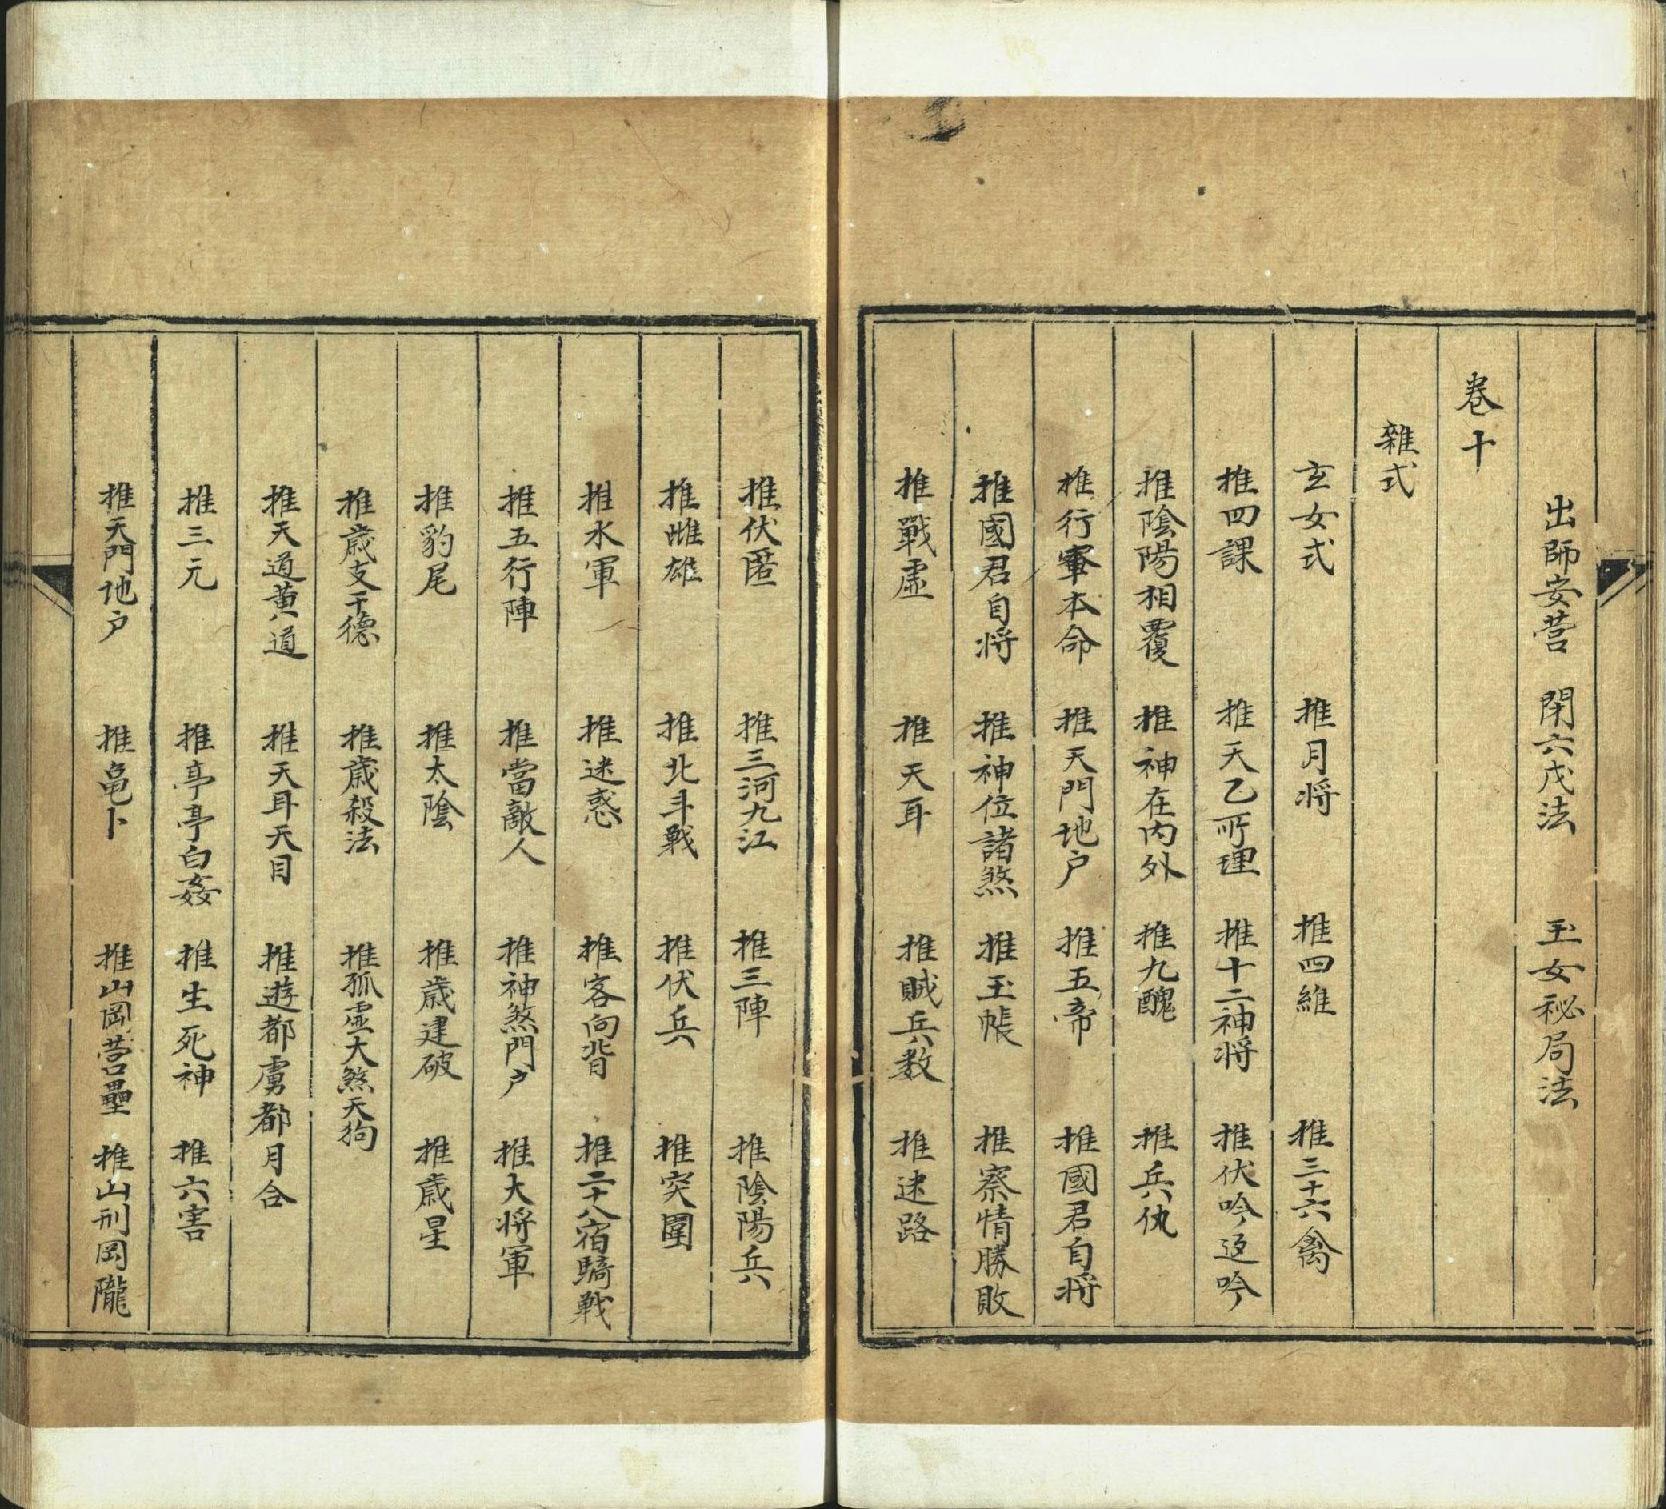 出師安营　閉六戊法　玉女秘局法
卷十
雜式
玄女式　推月将　推四維　推三十六禽
推四課　推天乙所理　推十二神将　推伏吟返吟
推陰陽相覆　推神在内外　推九醜　推兵仇
推行軍本命　推天門地户　推五帝　推國君自将
推國君自将　推神位諸煞　推玉帳　推察情勝敗
推戰虛　推天耳　推賊兵数　推迷路
推伏匿　推三河九江　推三陣　推陰陽兵
推雌雄　推北斗戰　推伏兵　推突圍
推水軍　推迷惑　推客向背　推二十八宿騎戰
推五行陣　推當敵人　推神煞門户　推大将軍
推豹尾　推太陰　推歲建破　推歲星
推歲支干德　推歲殺法　推孤虛大煞天狗
推天道黄道　推天耳天目　推遊都虜都月合
推三元　推亭亭白姦　推生死神　推六害
推天門地户　推亀卜　推山岡营壘　推山刑岡隴